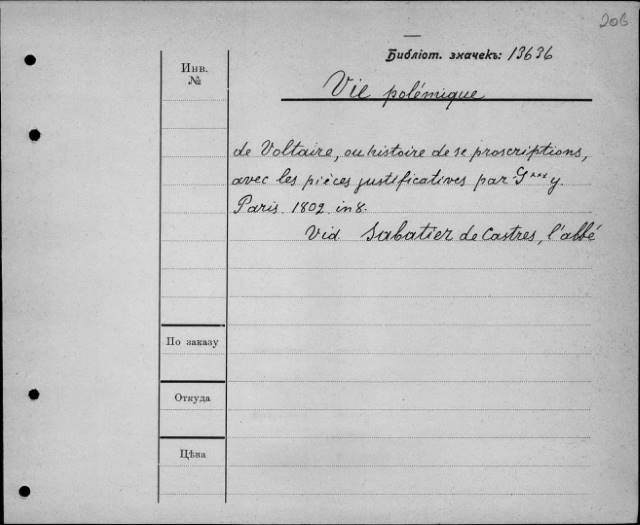 206
Библіот. значекъ: 13636
Инв.
№
Vie polémique
de Voltaire, ou histoire de se proscriptions,
avec les pièces justificatives par G***y.
Paris. 1802. in 8.
Vid. Sabatier de Castres, l'abbé
По заказу
Откуда
Цѣна